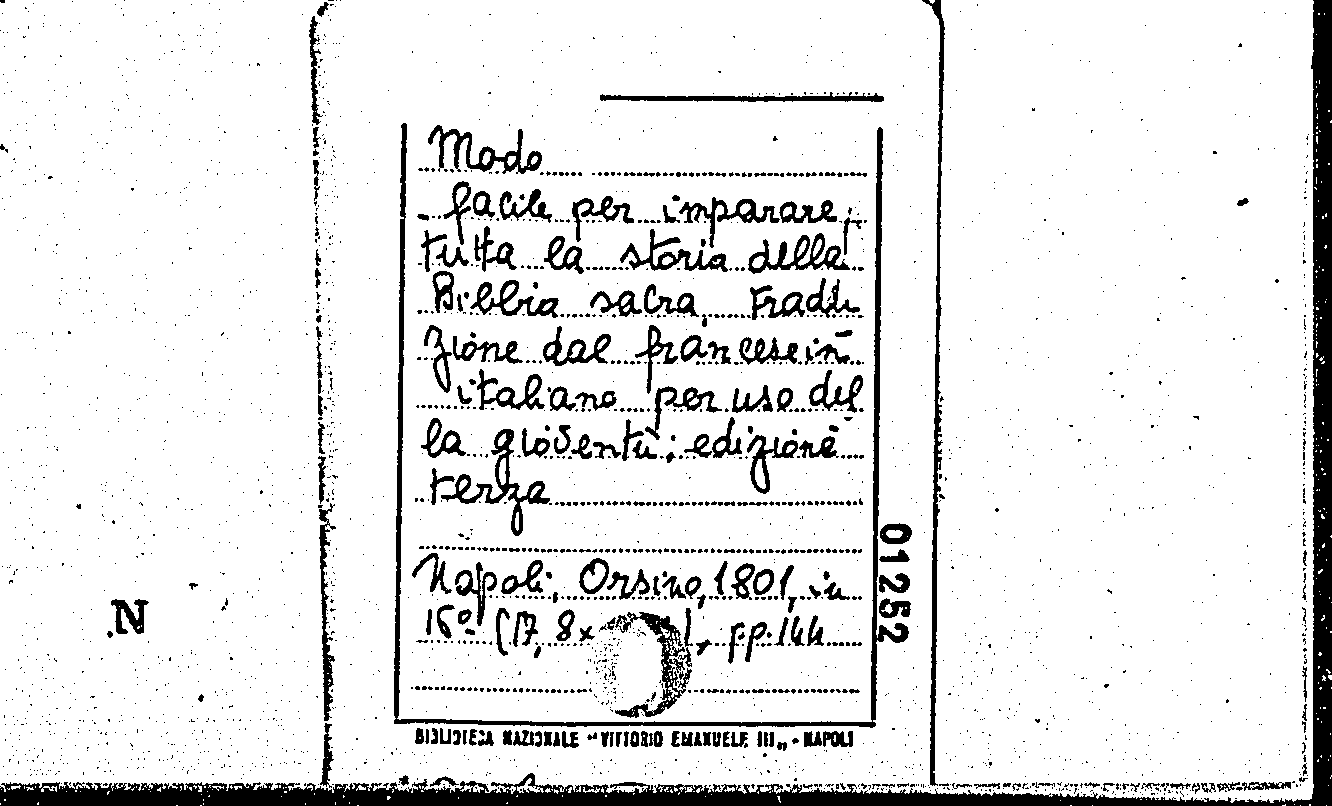 Modo
facile per imparare
tutta la storia della
Bibbia sacra, Tradu
zione dal francese in
italiano per uso del
la gioventù; edizione
terza
Napoli, Orsino, 1801, in
16º (17, 8x ), pp. 144
01252
N
BIBLIOTECA NAZIONALE "VITTORIO EMANUELE III„ - NAPOLI